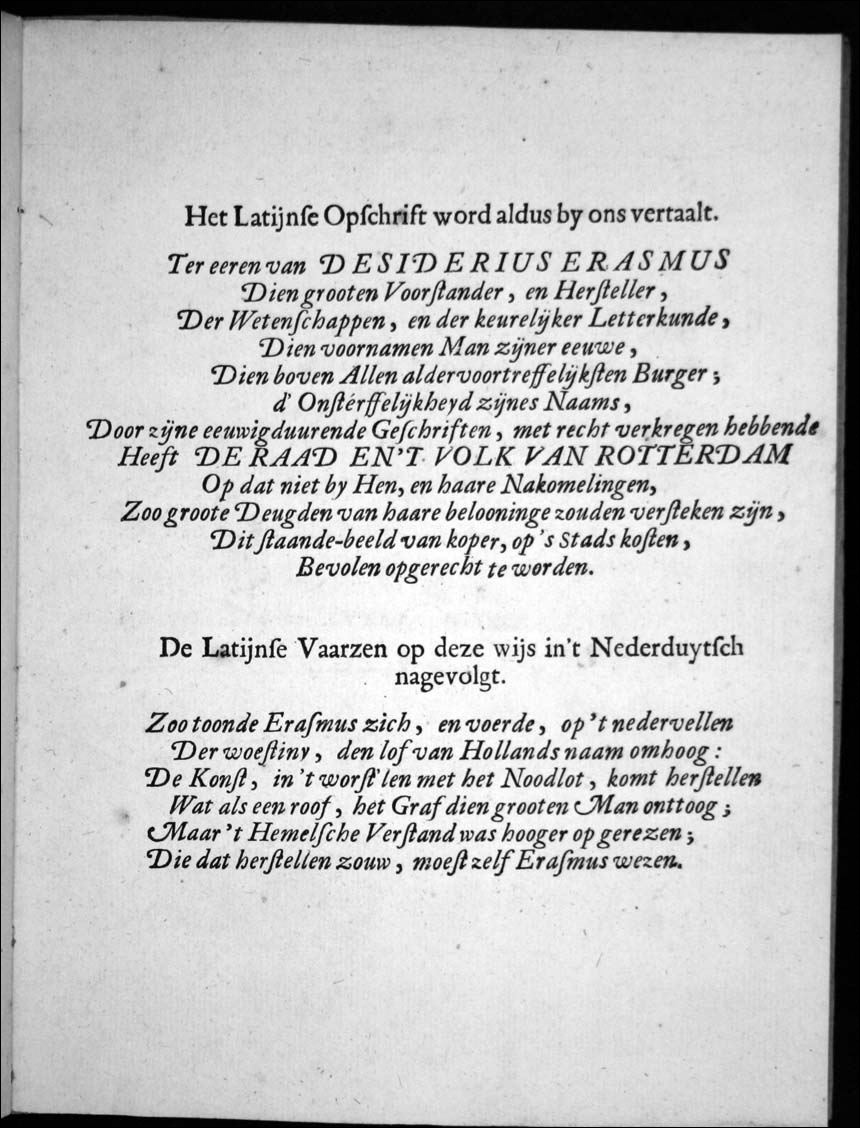 Het Latijnſe Opſchrift word aldus by ons vertaalt.
Ter eeren van DESIDERIUS ERASMUS
Dien grooten Voorſtander, en Herſteller,
Der Wetenſchappen, en der keurelijker Letterkunde,
Dien voornamen Man zijner eeuwe,
Dien boven Allen aldervoortreffelijkſten Burger;
d' Onſtérffelijkheyd zijnes Naams,
Door zijne eeuwigduurende Geſchriften, met recht verkregen hebbende
Heeft DE RAAD EN'T VOLK VAN ROTTERDAM
Op dat niet by Hen, en haare Nakomelingen,
Zoo groote Deugden van haare belooninge zouden verſteken zijn,
Dit ſtaande-beeld van koper, op 's Stads koſten,
Bevolen opgerecht te worden.
De Latijnſe Vaarzen op deze wijs in't Nederduytſch
nagevolgt.
Zoo toonde Eraſmus zich, en voerde, op 't nedervellen
Der woeſtiny, den lof van Hollands naam omhoog:
De Konſt, in 't worſt'len met het Noodlot, komt herſtellen
Wat als een roof, het Graf dien grooten Man onttoog;
Maar 't Hemelſche Verſtand was hooger opgerezen;
Die dat herſtellen zouw, moeſt zelf Eraſmus wezen.